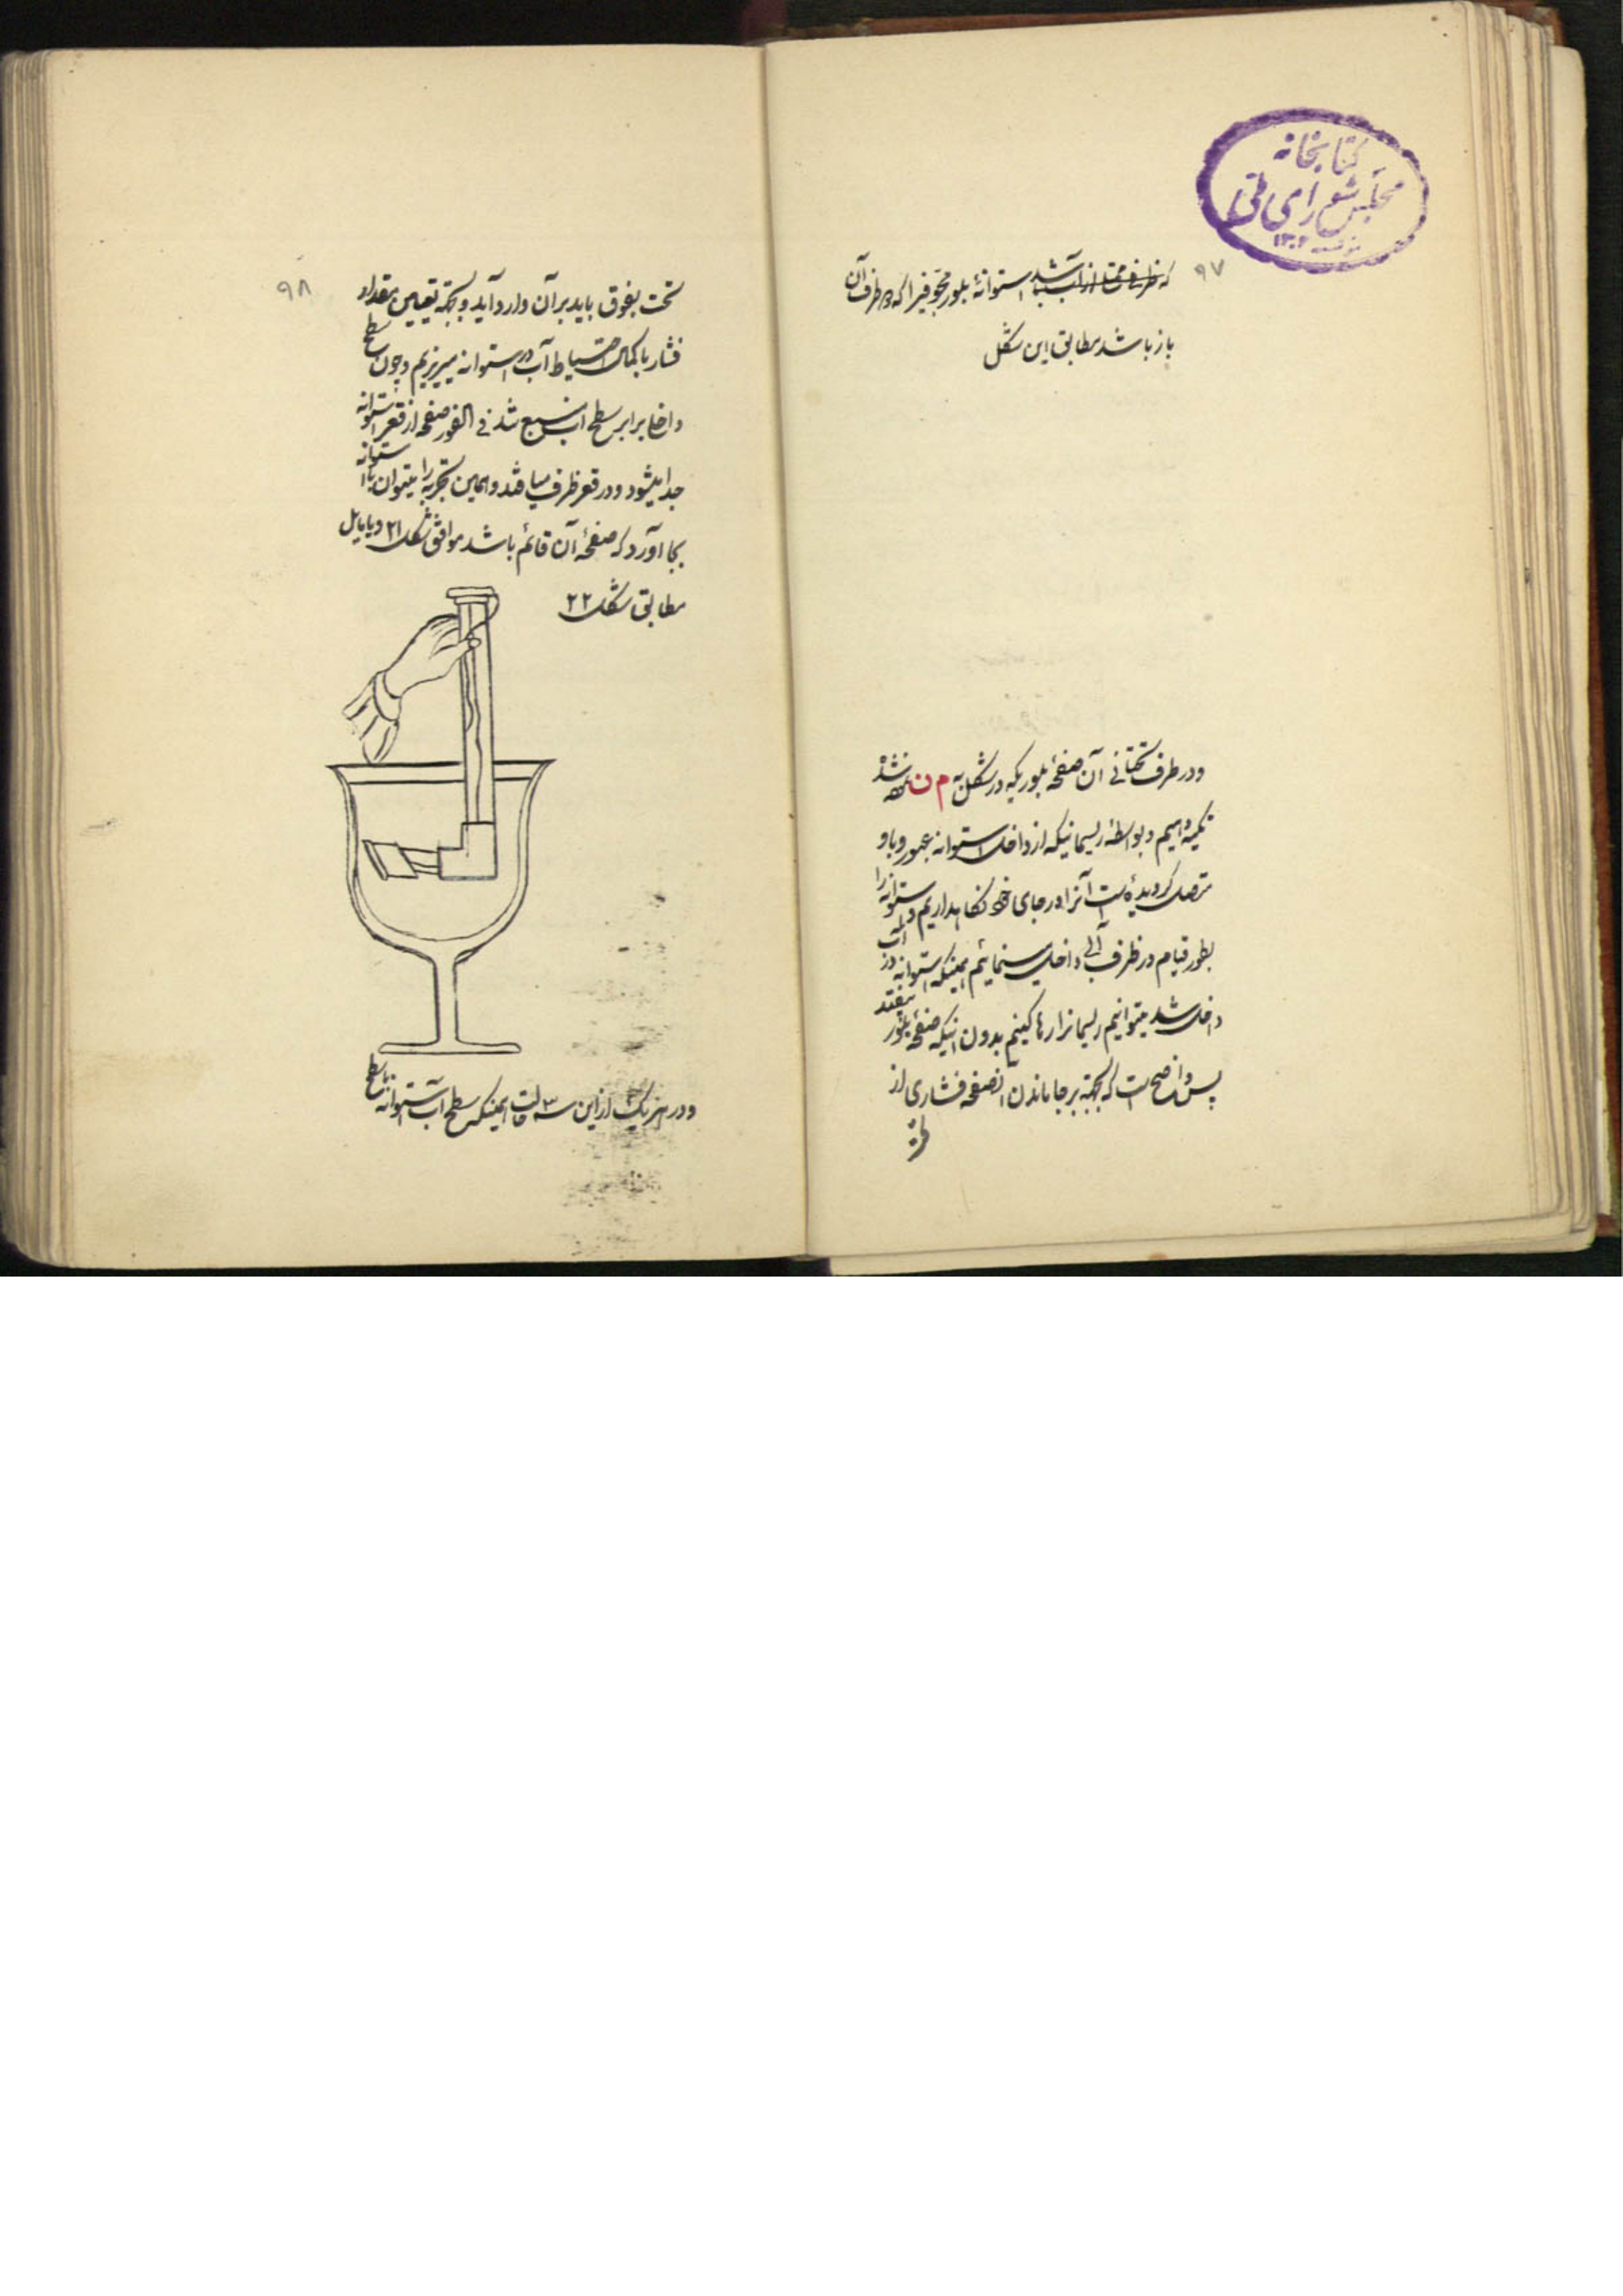 کتابخانه
مجلس شورای ملی
۹۷
که ظرفی ممتلی از آب باشد استوانهٔ بلور مجوفیرا که دو طرف آن
باز باشد مطابق این شکل
و در طرف تحتانی آن صفحهٔ بلوریکه در شکل به م ن شده
تکیه دهیم و بواسطهٔ ریسمانیکه از داخل استوانه عبور و باو
متصل گردیده است آنرا در جای خود نگاهداریم و استوانه را
بطور قیام در ظرف آب داخل مینمائیم همینکه استوانه در آب
داخل شد میتوانیم ریسمانرا رها کنیم بدون اینکه صفحه بلور بیفتد
پس واضح است که بجهة برجا ماندن آنصفحه فشاری از
۹۸
تحت بفوق باید بر آن وارد آید و بجهة تعیین مقدار
فشار با کمال احتیاط آب در استوانه میریزیم و چون سطح
داخل برابر سطح آب شد فی الفور صفحه از قعر استوانه
جدا میشود و در قعر ظرف میافتد و همین تجربه را میتوان با استوانه
بجا آورد که صفحهٔ آن قائم باشد موافق شکل ۲۱ و یا مایل
مطابق شکل ۲۲
و در هر یک از این سه حالت همینکه سطح آب استوانه با سطح